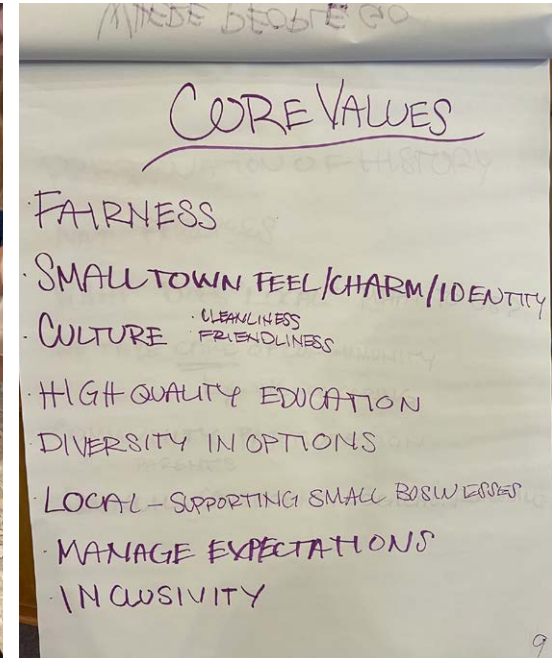 WHERE PEOPLE GO
CORE VALUES
· FAIRNESS
· SMALL TOWN FEEL/CHARM/IDENTITY
· CULTURE · CLEANLINESS
FRIENDLINESS
· HIGH QUALITY EDUCATION
· DIVERSITY IN OPTIONS
· LOCAL – SUPPORTING SMALL BUSINESSES
· MANAGE EXPECTATIONS
· INCLUSIVITY
9